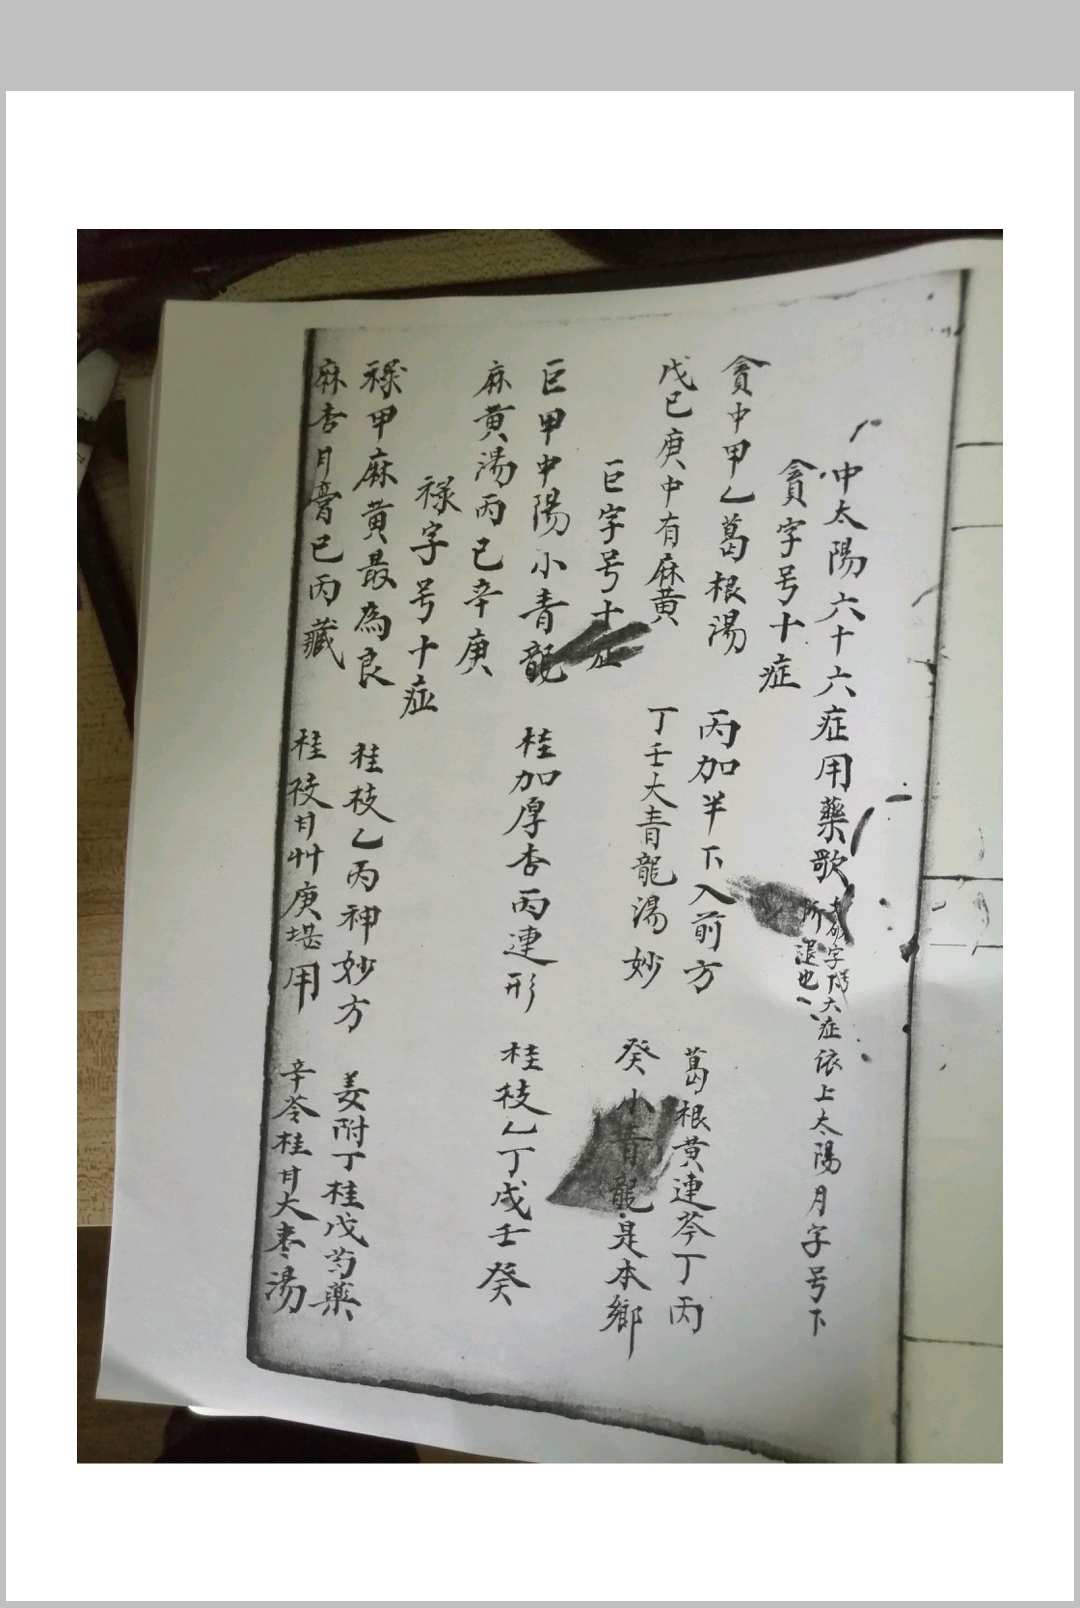 中太陽六十六症用藥歌
字附大症依上太陽月字号下
所混也
貪字号十症
貪中甲乙葛根湯 丙加半下入前方 葛根黄連芩丁丙
戊已庚中有麻黄 丁壬大青龍湯妙 癸小青龍是本鄉
巨字号十症
巨甲中陽小青龍 桂加厚杏丙連形 桂枝乙丁戊壬癸
麻黄湯丙已辛庚
禄字号十症
禄甲麻黄最為良 桂枝乙丙神妙方 姜附丁桂戊芍藥
麻杏月膏已丙藏 桂枝甘艸庚堪用 辛苓桂甘大枣湯